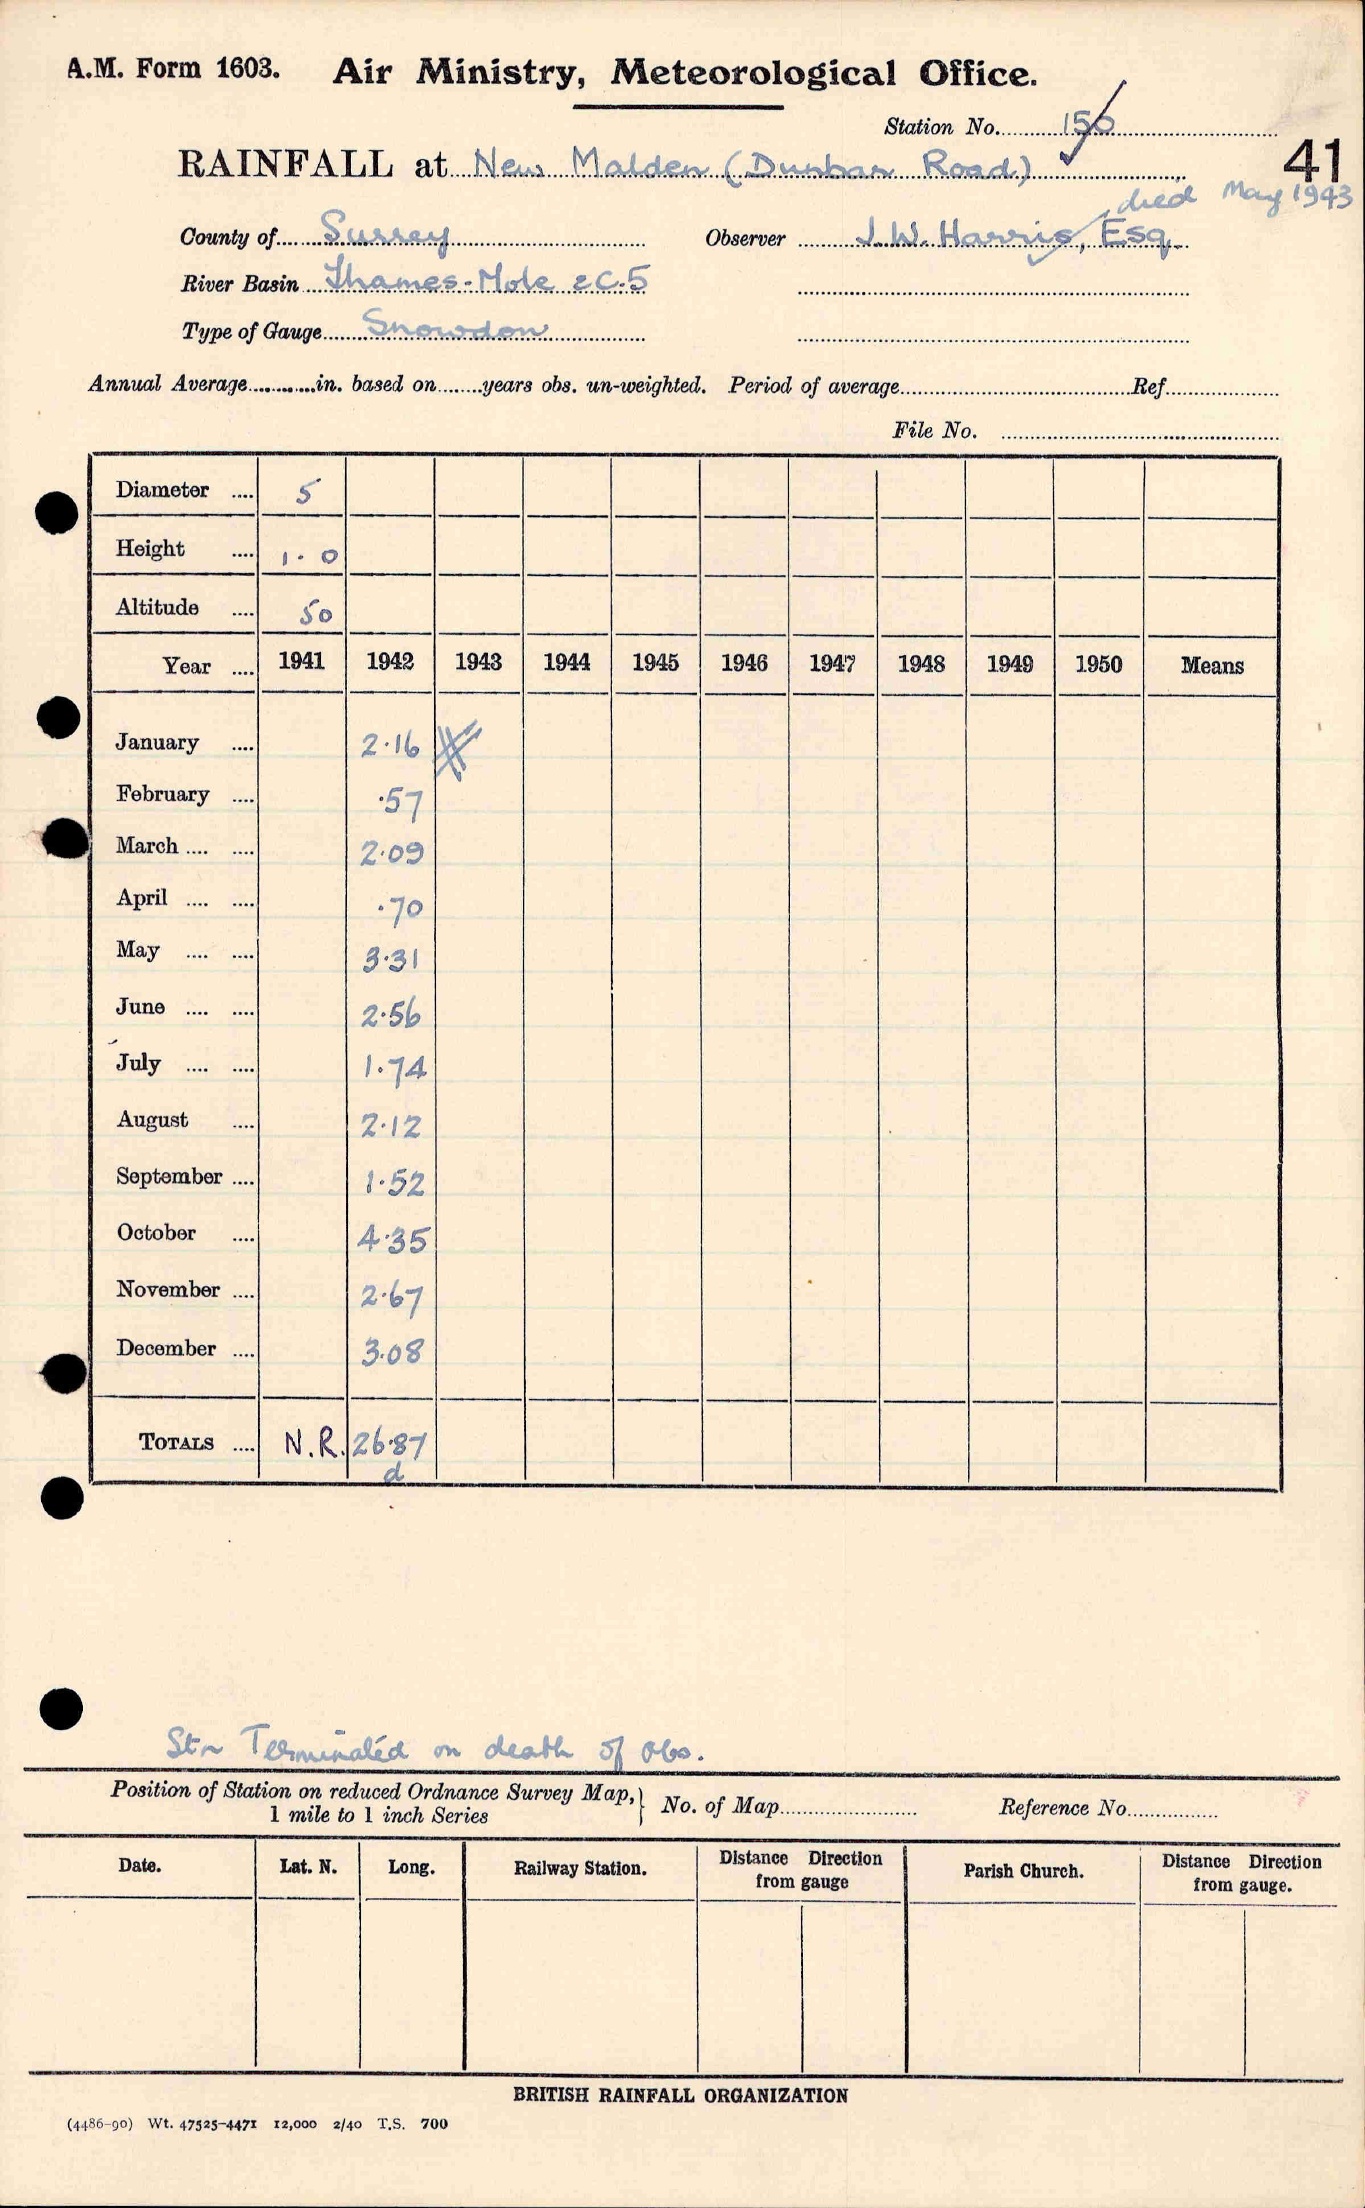 A.M. Form 1603. Air Ministry, Meteorological Office.
Station No. 150
41
RAINFALL at New Malden (Dunbar Road)
died May 1943
County of Surrey Observer J.W. Harris, Esq.
River Basin Thames-Mole 2C.5
Type of Gauge Snowdon
Annual Average in. based on years obs. un-weighted. Period of average Ref
File No.
Diameter .... 5
Height .... 1.0
Altitude .... 50
Year .... 1941 1942 1943 1944 1945 1946 1947 1948 1949 1950 Means
January .... 2.16
February .... .57
March .... .... 2.09
April .... .... .70
May .... .... 3.31
June .... .... 2.56
July .... .... 1.74
August .... 2.12
September .... 1.52
October .... 4.35
November .... 2.67
December .... 3.08
TOTALS .... N.R. 26.87
d
Stn Terminated on death of obs.
Position of Station on reduced Ordnance Survey Map,} No. of Map Reference No.
1 mile to 1 inch Series
Date. Lat. N. Long. Railway Station. Distance Direction from gauge Parish Church. Distance Direction from gauge.
BRITISH RAINFALL ORGANIZATION
(4486-90) Wt. 47525-4471 12,000 2/40 T.S. 700